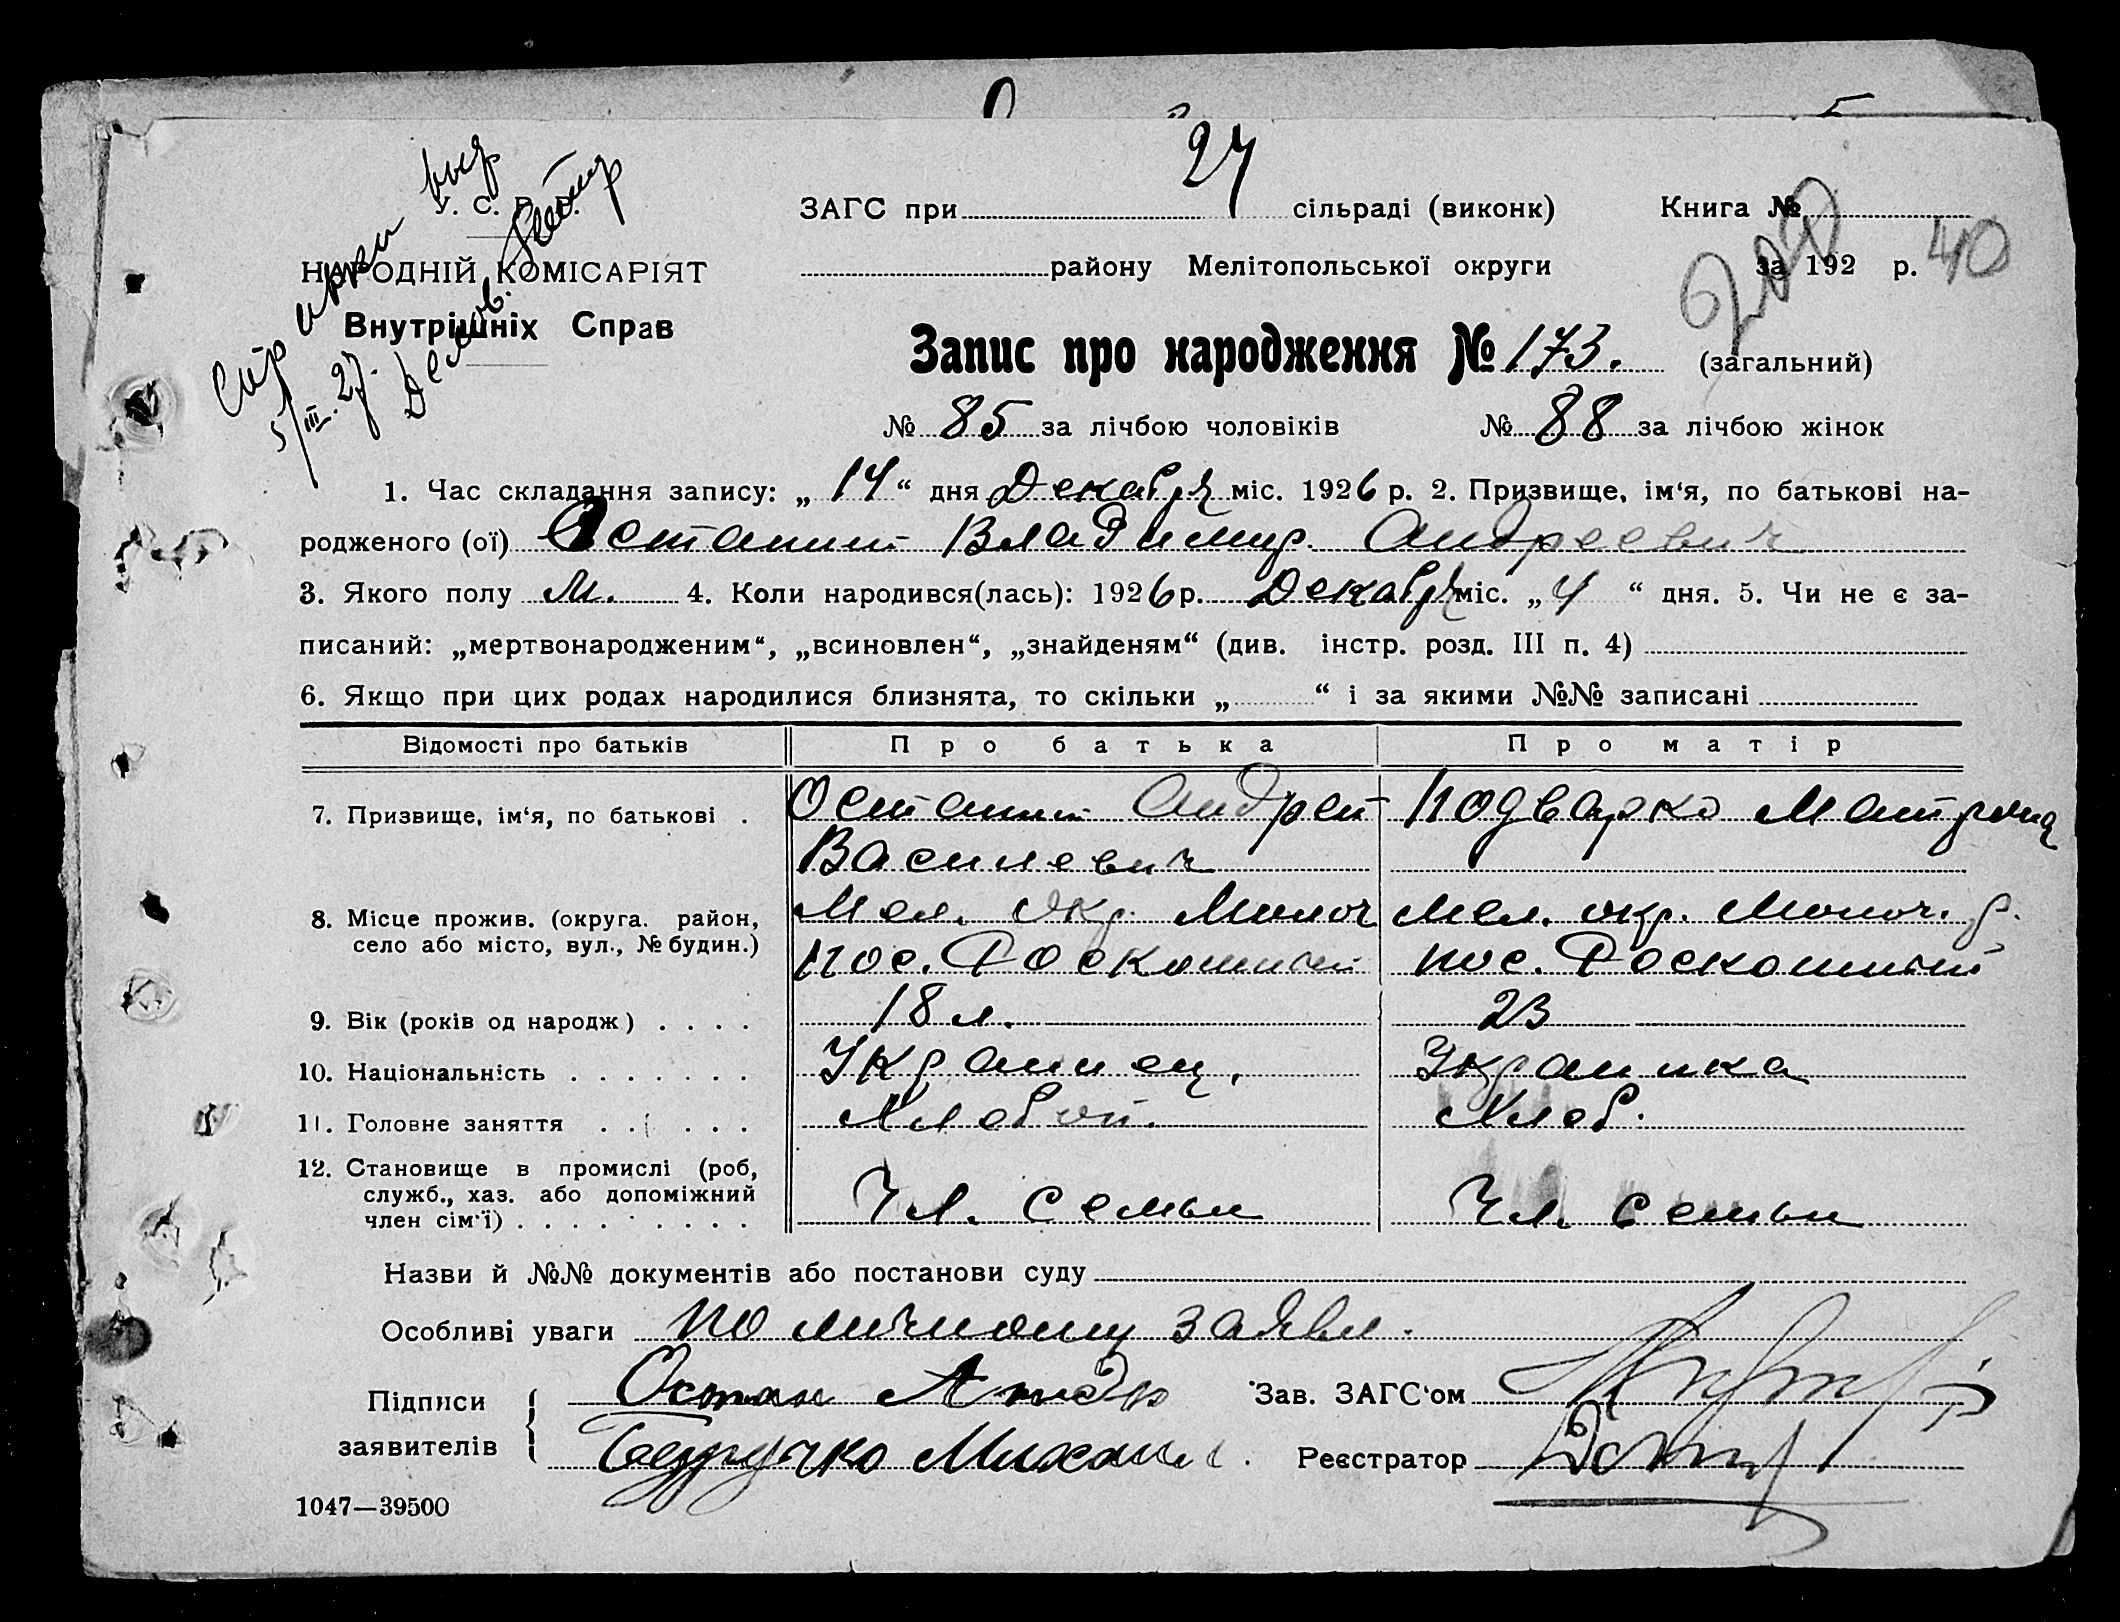 24
У. С. Р. Р.
ЗАГС при сільраді (виконк) Книга №
НАРОДНІЙ КОМІСАРІЯТ
району Мелітопольської округи за 192 р. 40
Внутрішніх Справ
5/III. 27.
Запис про народження № 173. (загальний)
№ 85 за лічбою чоловіків № 88 за лічбою жінок
1. Час складання запису: „ 14 “ дня Декабря міс. 1926 р. 2. Призвище, ім‘я, по батькові на-
родженого (ої) Владимир Андреевич
3. Якого полу м. 4. Коли народився(лась): 1926 р. Декабря міс. „ 4 “ дня. 5. Чи не є за-
писаний: „мертвонародженим“, „всиновлен“, „знайденям“ (див. інстр. розд. III п. 4)
6. Якщо при цих родах народилися близнята, то скільки „ “ і за якими №№ записані
Відомості про батьків Про батька Про матір
7. Призвище, ім‘я, по батькові . Андрей Матрона
Василевич
8. Місце прожив. (округа. район, Мел. окр. Молоч Мел. окр. Молоч. р.
село або місто, вул., № будин.) пос. Роскошный пос. Роскошный
9. Вік (років од народж) . . . . 18 л. 23
10. Національність . . . . . . . Украинец. Украинка
11. Головне заняття . . . . . Хлебоп. Хлеб.
12. Становище в промислі (роб, Чл. семьи Чл. семьи
служб., хаз. або допоміжний
член сім‘ї) . . . . . . . . .
Назви й №№ документів або постанови суду
Особливі уваги по личному заявл.
Підписи Зав. ЗАГС‘ом
заявителів Михаил Реєстратор
1047—39500